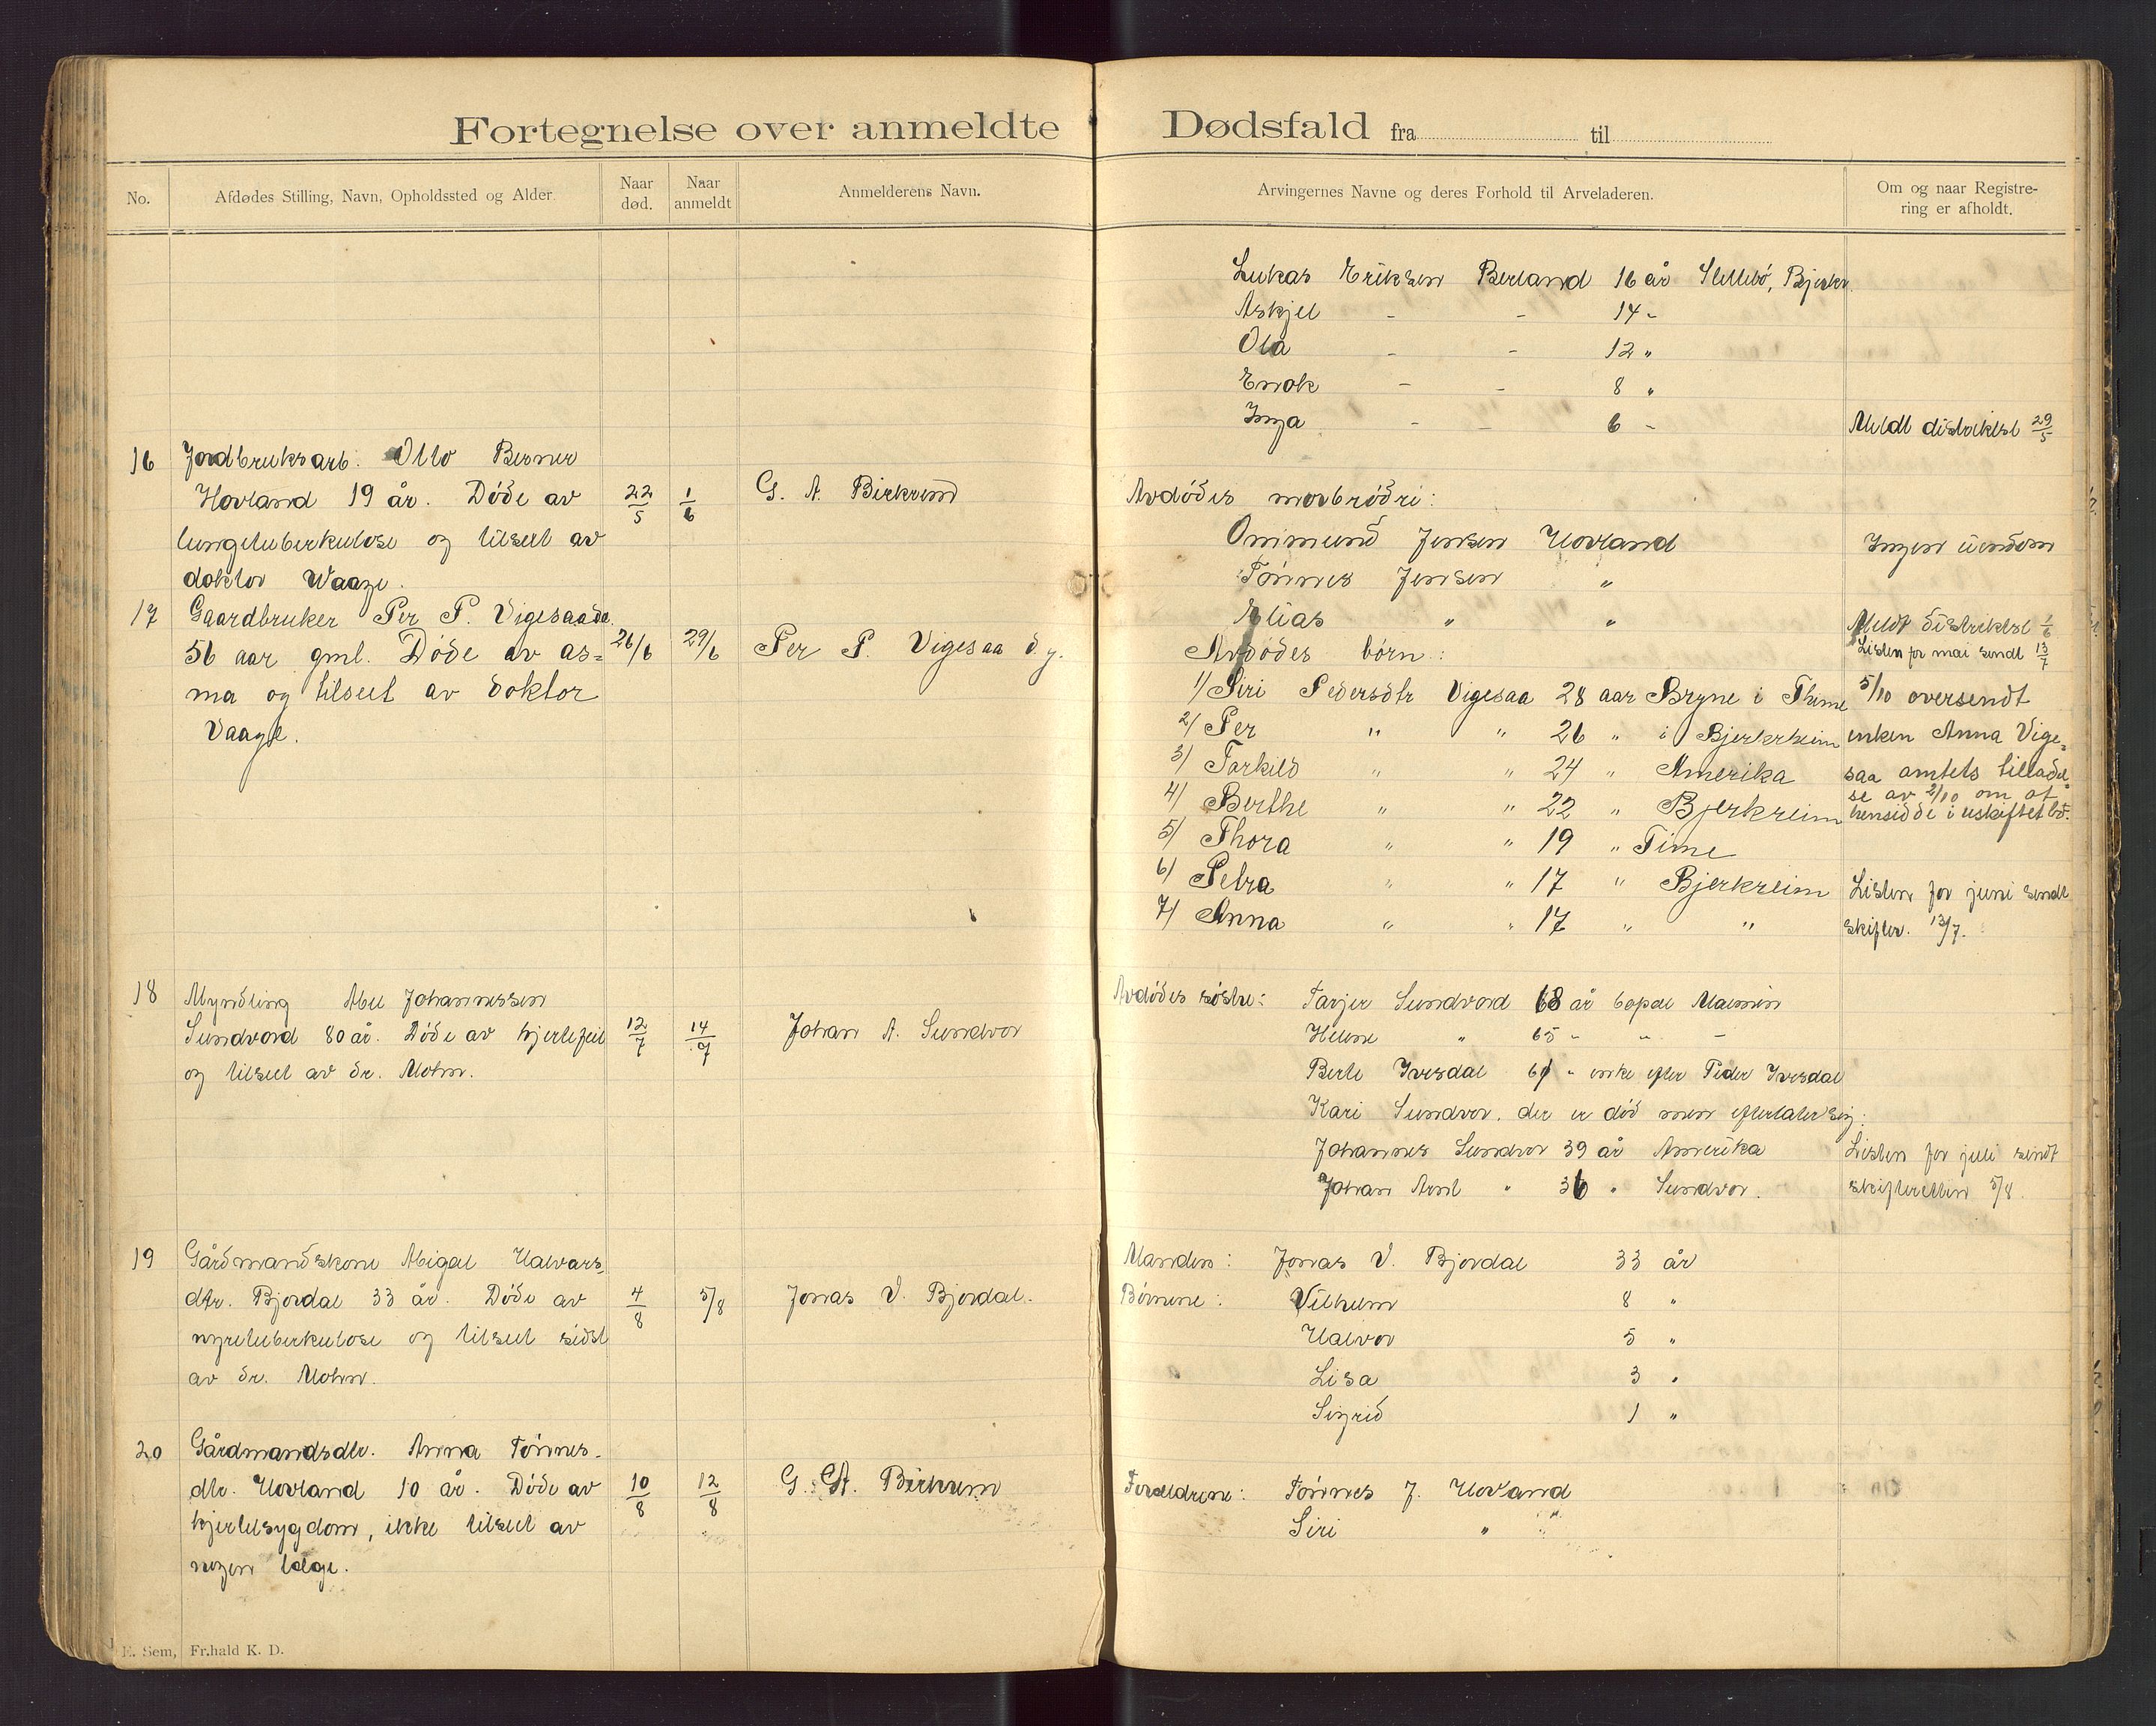 Fortegnelse over anmeldte Dødsfald fra til
No.
Afdødes Stilling, Navn, Opholdssted og Alder.
Naar død.
Naar anmeldt
Anmelderens Navn.
Arvingernes Navne og deres Forhold til Arveladeren.
Om og naar Registrering er afholdt.
Lukas Eriksen Berland 16 år Slettebö, Bjerkr.
Askjel - - 14 -
Ola - - 12 "
Enok - - 8 "
Inga - - 6 -
Meldt distriktsl 29/5
16 Jordbruksarb. Otto Berner
Hovland 19 år. Döde av
lungetuberkulose og tilseet av
doktor Waage.
22/5
1/6
G. A. Birkrem
Avdödes morbrödre:
Ommund Jensen Hovland
Tönnes Jensen "
Elias " "
Ingen eiendom
Meldt distriktsl 1/6
Listen for mai sendt 13/7
17 Gaardbruker Per P. Vigesaa de.
56 aar gml. Döde av as=
ma og tilseet av doktor
Vaage.
26/6
29/6
Per P. Vigesaa d y.
Avdödes börn:
1/ Siri Pedersdtr Vigesaa 28 aar Bryne i Thime
2/ Per " " 26 " i Bjerkreim
3/ Torkild " " 24 " Amerika
4/ Berthe " " 22 " Bjerkreim
5/ Thora " " 19 " Time
6/ Petra " " 17 " Bjerkreim
7/ Anna " " 17 " "
5/10 oversendt
enken Anna Vige=
saa amtets tilladel
se av 2/10 om at
hensidde i uskiftet bo.
Listen for juni sendt
skifter. 13/7.
18 Myndling Abel Johannessen
Sundvord 80 år. Döde av hjertefeil
og tilseet av dr. Mohn.
12/7
14/7
Johan A. Sundvor
Avdödes söstre: Tarjer Sundvord 68 år bopæl Malmin
Helene " 65 - " -
Berte Ivesdal 61 " enke efter Peder Ivesdal
Kari Sundvor. der er död men efterlater sig:
Johannes Sundvor 39 år Amerika
Johan Arnt " 36 " Sundvor.
Listen for juli sendt
skifteretten 5/8.
19 Gårdmandskone Abigael Halvors
dtr. Bjordal 33 år. Döde av
nyretuberkulose og tilseet sidst
av dr. Mohn.
4/8
5/8
Jonas V. Bjordal.
Manden: Jonas V. Bjordal 33 år
Börnene: Vilhelm 8 "
Halvor 5 "
Lisa 3 "
Sigrid 1 "
20 Gårdmandsdtr. Anna Tönnes-
dtr. Hovland 10 år. Döde av
hjertesygdom, ikke tilseet av
nogen læge.
10/8
12/8
G. A. Birkrem
Forældrene: Tönnes J. Hovland
Siri " "
E. Sem, Fr.hald K. D.